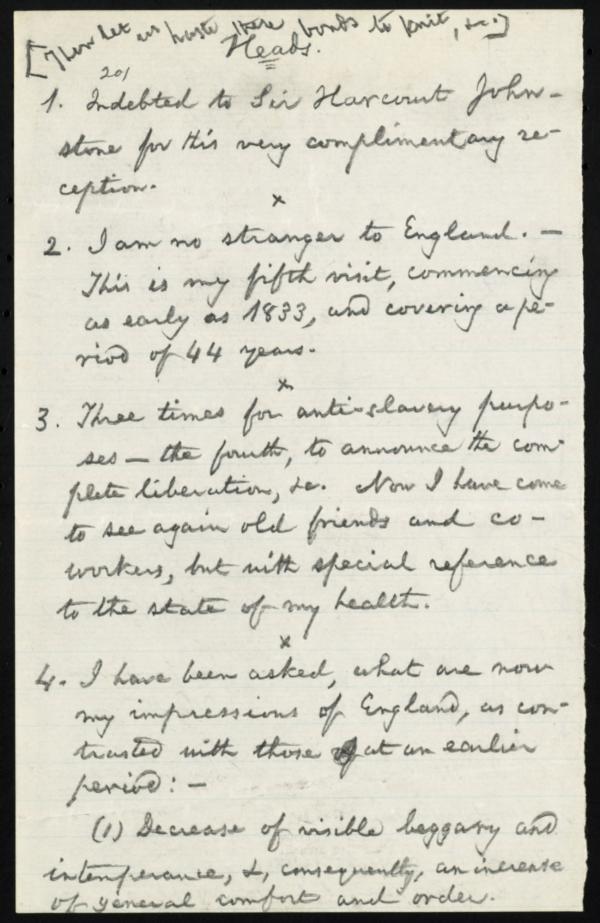 [Then let us haste these bonds to knit, &c.]
Heads.
201
1. Indebted to Sir Harcourt John-
stone for this very complimentary re-
ception.
x
2. I am no stranger to England. —
This is my fifth visit, commencing
as early as 1833, and covering a pe-
riod of 44 years.
x
3. Three times for anti-slavery purpo-
ses — the fourth, to announce the com-
plete liberation, &c. Now I have come
to see again old friends and co-
workers, but with special reference
to the state of my health.
x
4. I have been asked, what are now
my impressions of England, as con-
trasted with those at an earlier
period: —
(1) Decrease of visible beggary and
intemperance, &, consequently, an increase
of general comfort and order.